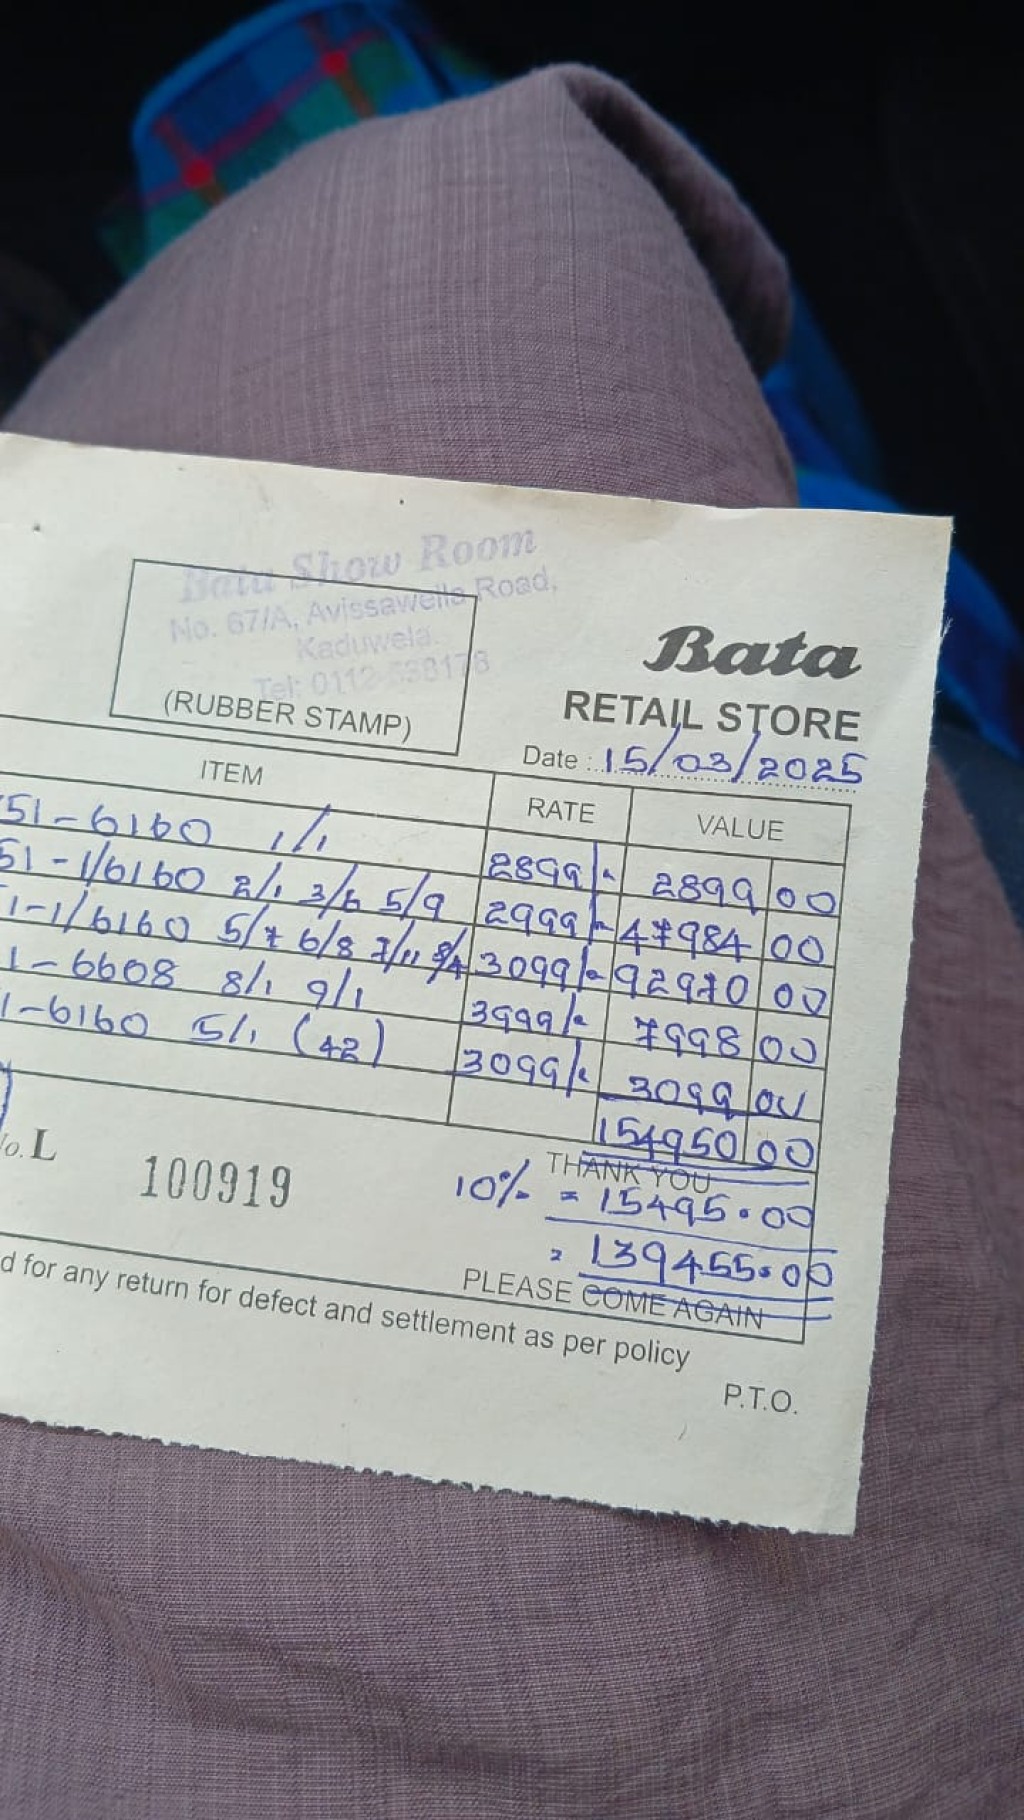 Bata Show Room
No. 67/A, Avissawella Road,
Kaduwela.
Tel: 0112 538178
(RUBBER STAMP)
Bata
RETAIL STORE
Date : 15/03/2025
ITEM RATE VALUE
51-6160 1/1 2899/- 2899 00
51-1/6160 2/1 3/6 5/9 2999/- 47984 00
1-1/6160 5/7 6/8 7/11 8/4 3099/- 92970 00
1-6608 8/1 9/1 3999/- 7998 00
1-6160 5/1 (42) 3099/- 3099 00
154950 00
No. L 100919
THANK YOU
10% = 15495.00
= 139455.00
PLEASE COME AGAIN
d for any return for defect and settlement as per policy
P.T.O.